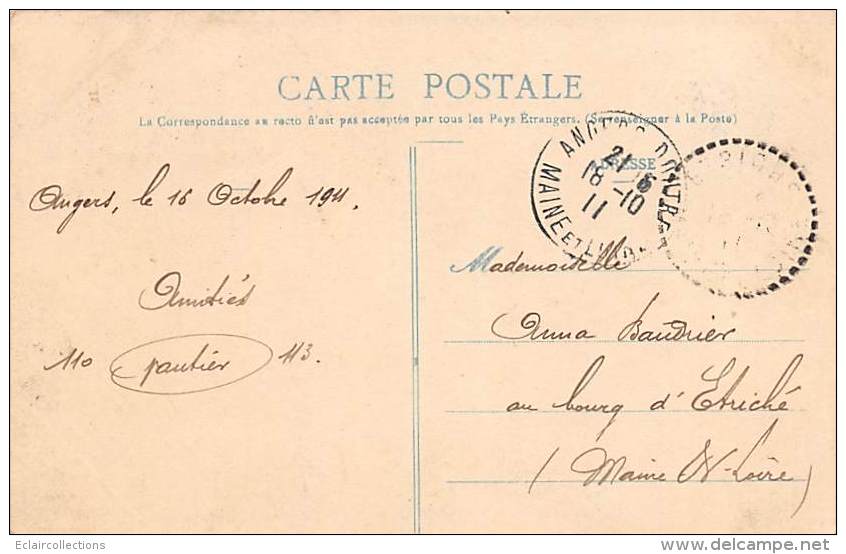 CARTE POSTALE
La Correspondance au recto n'est pas acceptée par tous les Pays Étrangers. (Se renseigner à la Poste)
ADRESSE
ANGERS DOUTRE
18-10
11
MAINE ET LOIRE
Angers, le 16 Octobre 1911.
Mademoiselle
Amitiés
Anna Baudrier
110 Gautier 113.
au bourg d'Etriché
(Maine &-Loire)
Eclaircollections
www.delcampe.net